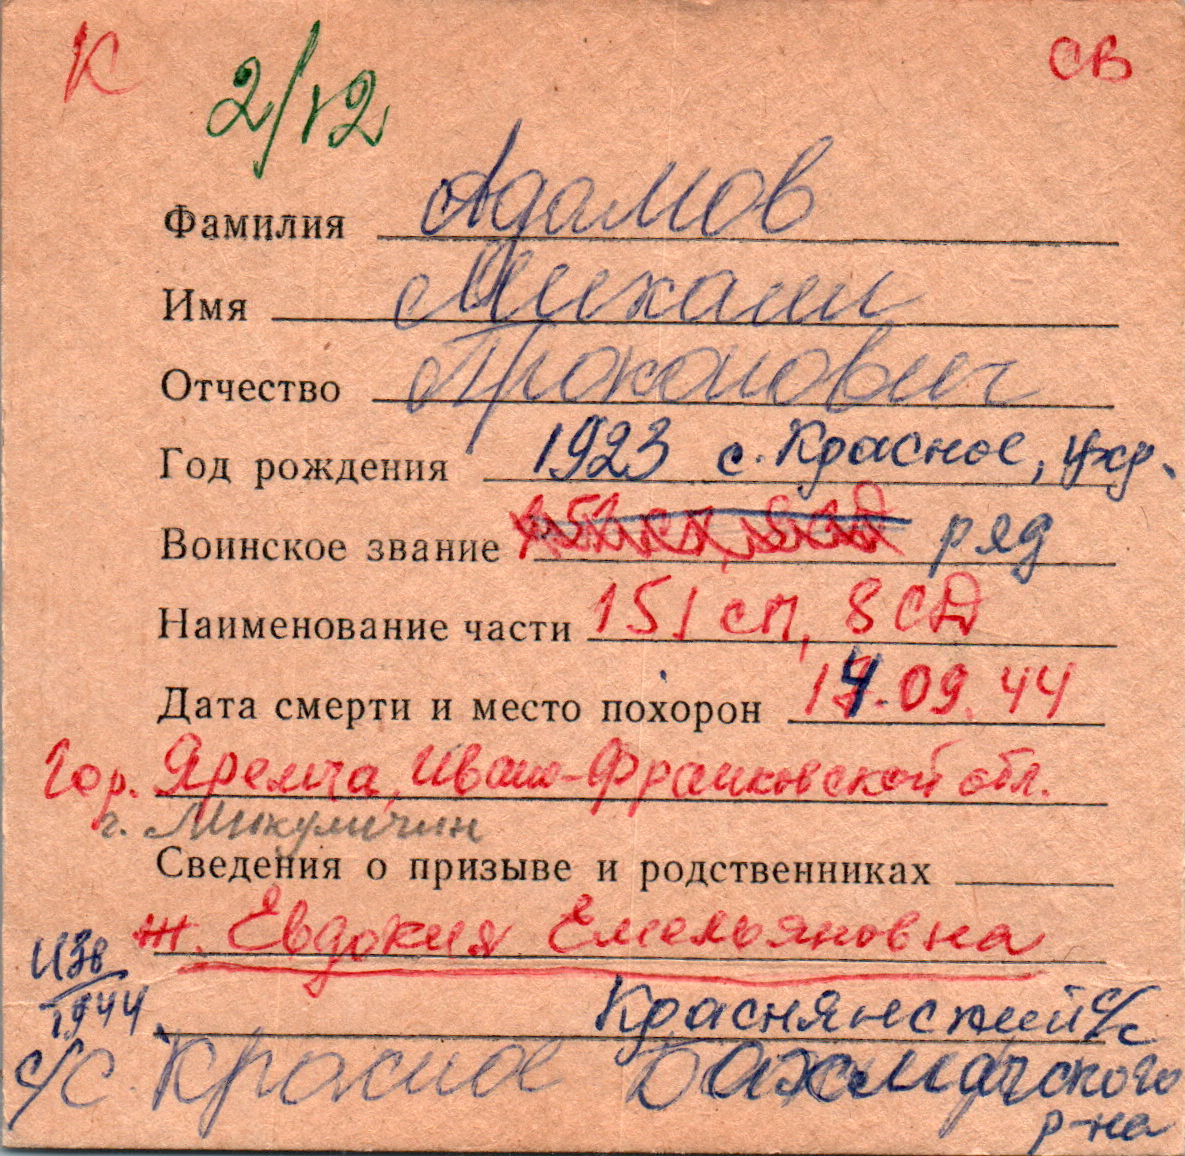 К
СВ
2/12
Фамилия Адамов
Имя Михаил
Отчество Прокопович
Год рождения 1923 с. Красное, укр.
Воинское звание 151 сп, 8 СД ряд
Наименование части 151 сп, 8 СД
Дата смерти и место похорон 14.09.44
Гор. Яремча, Ивано-Франковской обл.
г. Микуличин
Сведения о призыве и родственниках
ж. Евдокия Емельяновна
Изв
1944
Краснянский с/с
с/с Красное Бахмачского
р-на